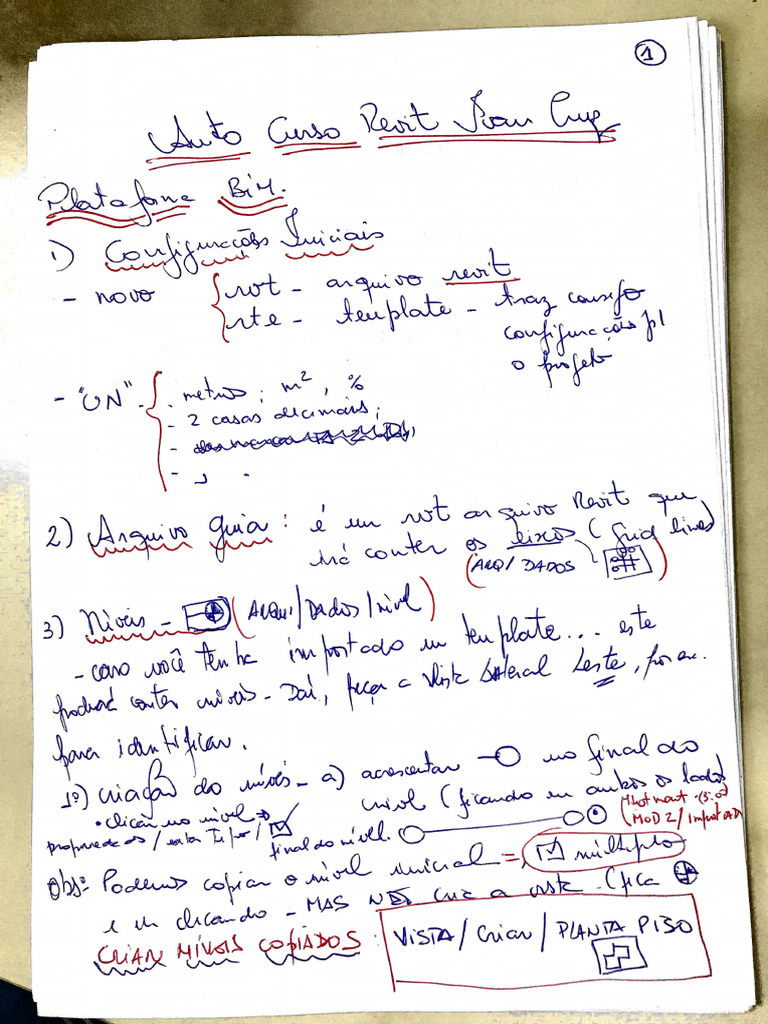 1
Auto Curso Revit Ivan Cruz
Plataforma BIM.
1) Configurações Iniciais
- novo { rvt - arquivo revit
rte - template - traz consigo
configurações p/
o projeto
- "UN" - { - metros ; m², %
- 2 casas decimais;
2) Arquivo guia : é um rvt arquivo Revit que
irá conter os eixos (Grid lines)
(ARQ/DADOS
3) Níveis - (ARQUI/DADOS/nível)
- caso você tenha importado um template... este
poderá conter níveis - Daí, peça a vista lateral Leste, por ex.
para identificar.
1º) criação do níveis - a) acrescentar no final do
nível (ficando em ambos os lados)
• clicar no nível →
propriedades / editar Tipo /
final do nível.
MOD 2 / Importad
Obs: Podemos copiar o nível inicial = múltiplo
e ir clicando - MAS NÃO cria a vista. (fica
CRIAR NÍVEIS COPIADOS :
VISTA / Criar / PLANTA PISO